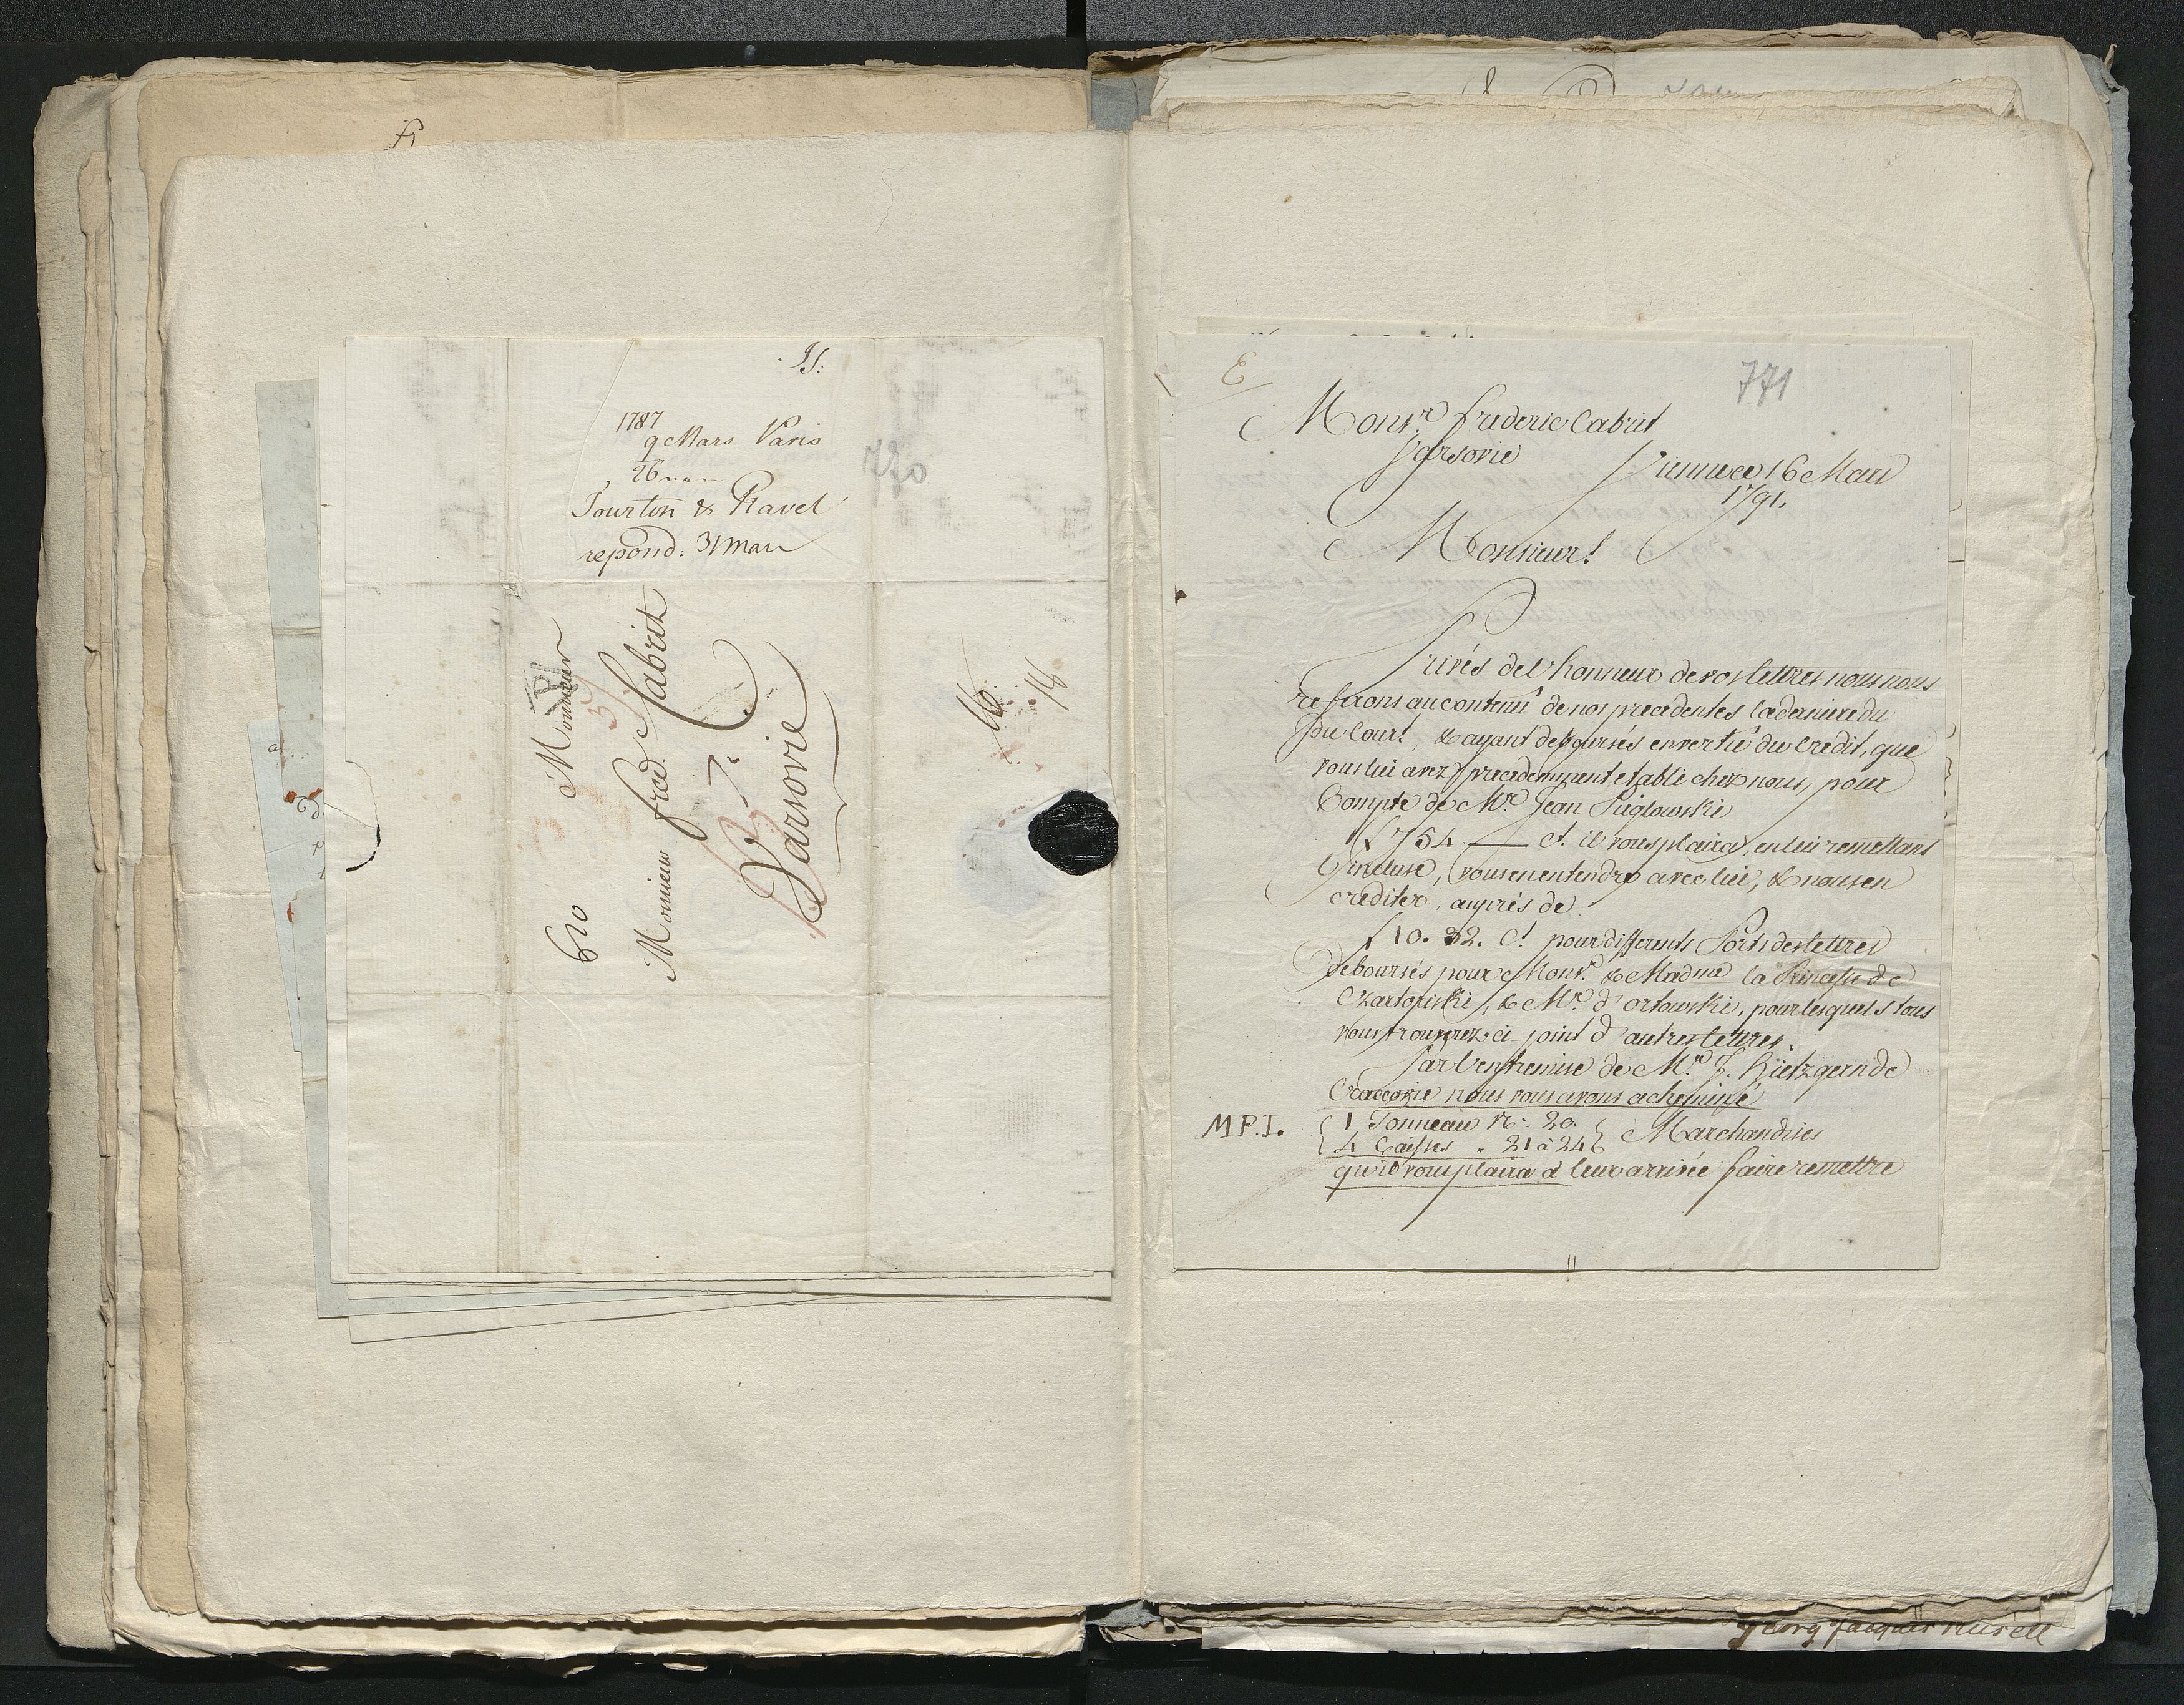 1787
9 Mars Paris
26 "
Tourton & Ravel
repond: 31 mars
770
Monsieur
Monsieur fred. Cabrit
Varsovie
16
18
771
Monsr. frederic Cabrit
Varsovie
Vienne ce 16 Mars
1791.
Monsieur!
Privés de l'honneur de vos lettres nous nous
referons au contenû de nos precedentes la derniere du
du Court, & ayant deboursés en vertû du Credit, que
vous lui avez precedemment etabli chez nous, pour
Compte de Mr. Jean
f 754.— Ct. il vous plaira, en lui remettant
l'incluse, vous en entendre avec lui, & nous en
crediter, auprès de
f 10. 32. Ct. pour differents Ports des lettres
deboursés pour Monsr. & Madme la Princesse de
Czartoriski, & Mr. d'orlowski, pour lesquels tous
vous trouverez ci joint d'autres lettres.
Par l'entremise de Mr. F. de
Craccovie nous vous avons acheminé
MPI. 1 Tonneau No. 20.
4 Caisses " 21 à 24 Marchandises
qu'il vous plaira à leur arrivée faire remettre
georg Jacques